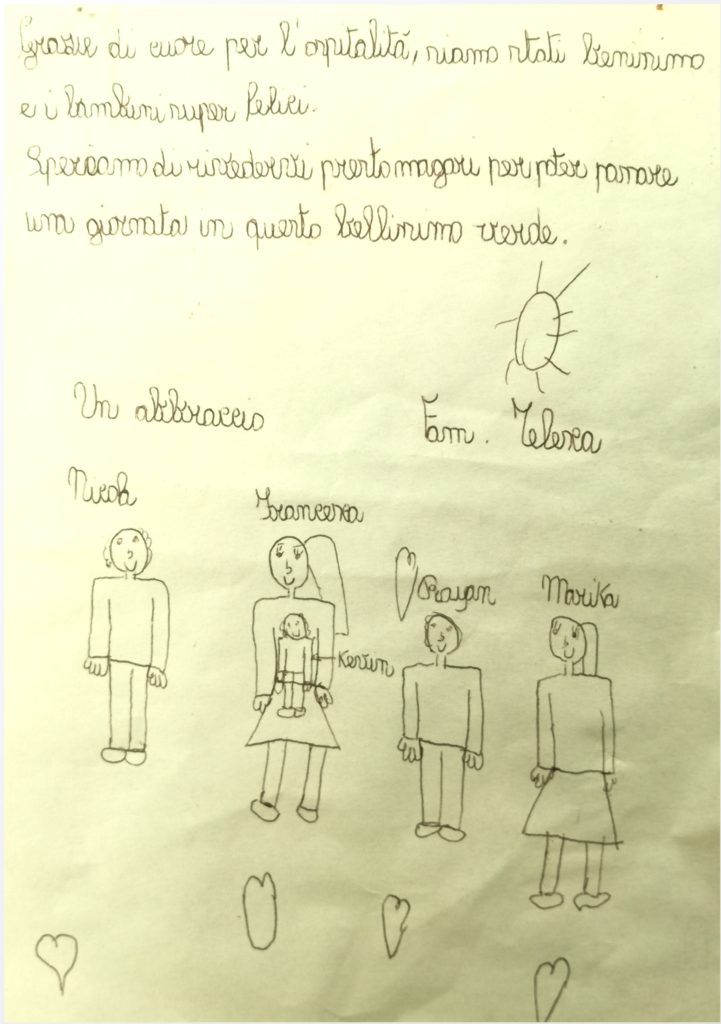 Grazie di cuore per l'ospitalitá, siamo stati benissimo
e i bambini super felici.
Speriamo di rivederVi presto magari per poter passare
una giornata in questo bellissimo verde.
Un abbraccio
Fam. Telesca
Nicola
Francesca
Rayan
Marika
Kevin